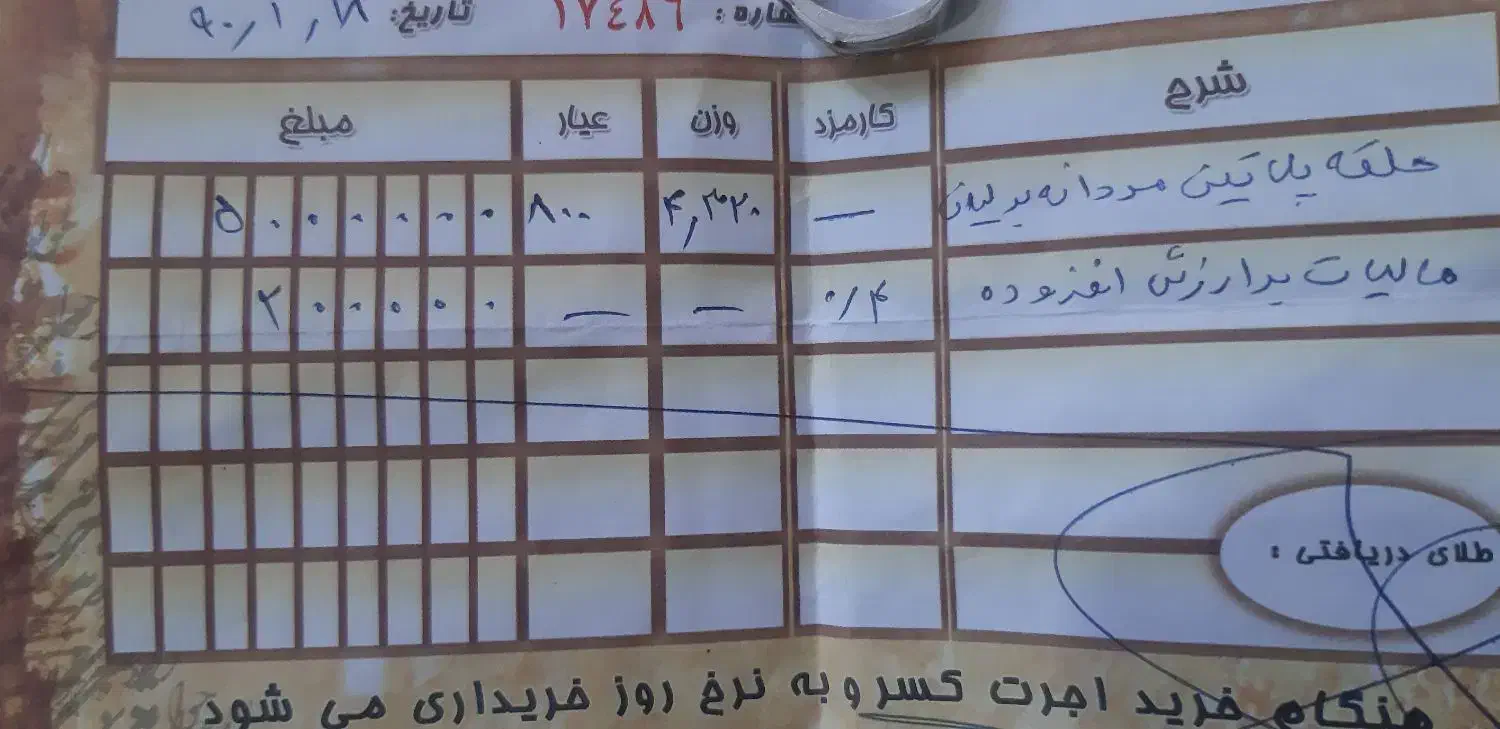 شماره : ۱۷۴۸۶ تاریخ: ۹۰٫۱٫۲۸
شرح کارمزد وزن عیار مبلغ
حلقه پلاتین مردانه برلیان — ۴٫۳۲۰ ۸۰۰ ۵۰۰۰۰۰۰
مالیات بر ارزش افزوده ۰/۴ — — ۲۰۰۰۰۰
طلای دریافتی :
هنگام خرید اجرت کسر و به نرخ روز خریداری می شود